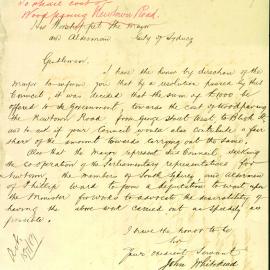 Wood paving Newtown Road.
His Worship the Mayor
and Aldermen City of Sydney
Gentlemen
I have the honor by direction of the
Mayor to inform you that by a resolution passed by this
Council, it was decided that the sum of £1000 be
offered to the Government, towards the cost of Wood paving
the Newtown Road from George Street West to
and to ask if your Council would also contribute a fair
share of the amount towards carrying out the same.
Also that the Mayor
the co-operation of the Parliamentary representatives for
Newtown, the members of South Sydney, and Aldermen
of Phillip Ward to form a deputation to wait upon
the Minister for Works to advocate the desirability of
having the above work carried out as speedily as
possible.
I have the honor to be
Your obedient Servant
John